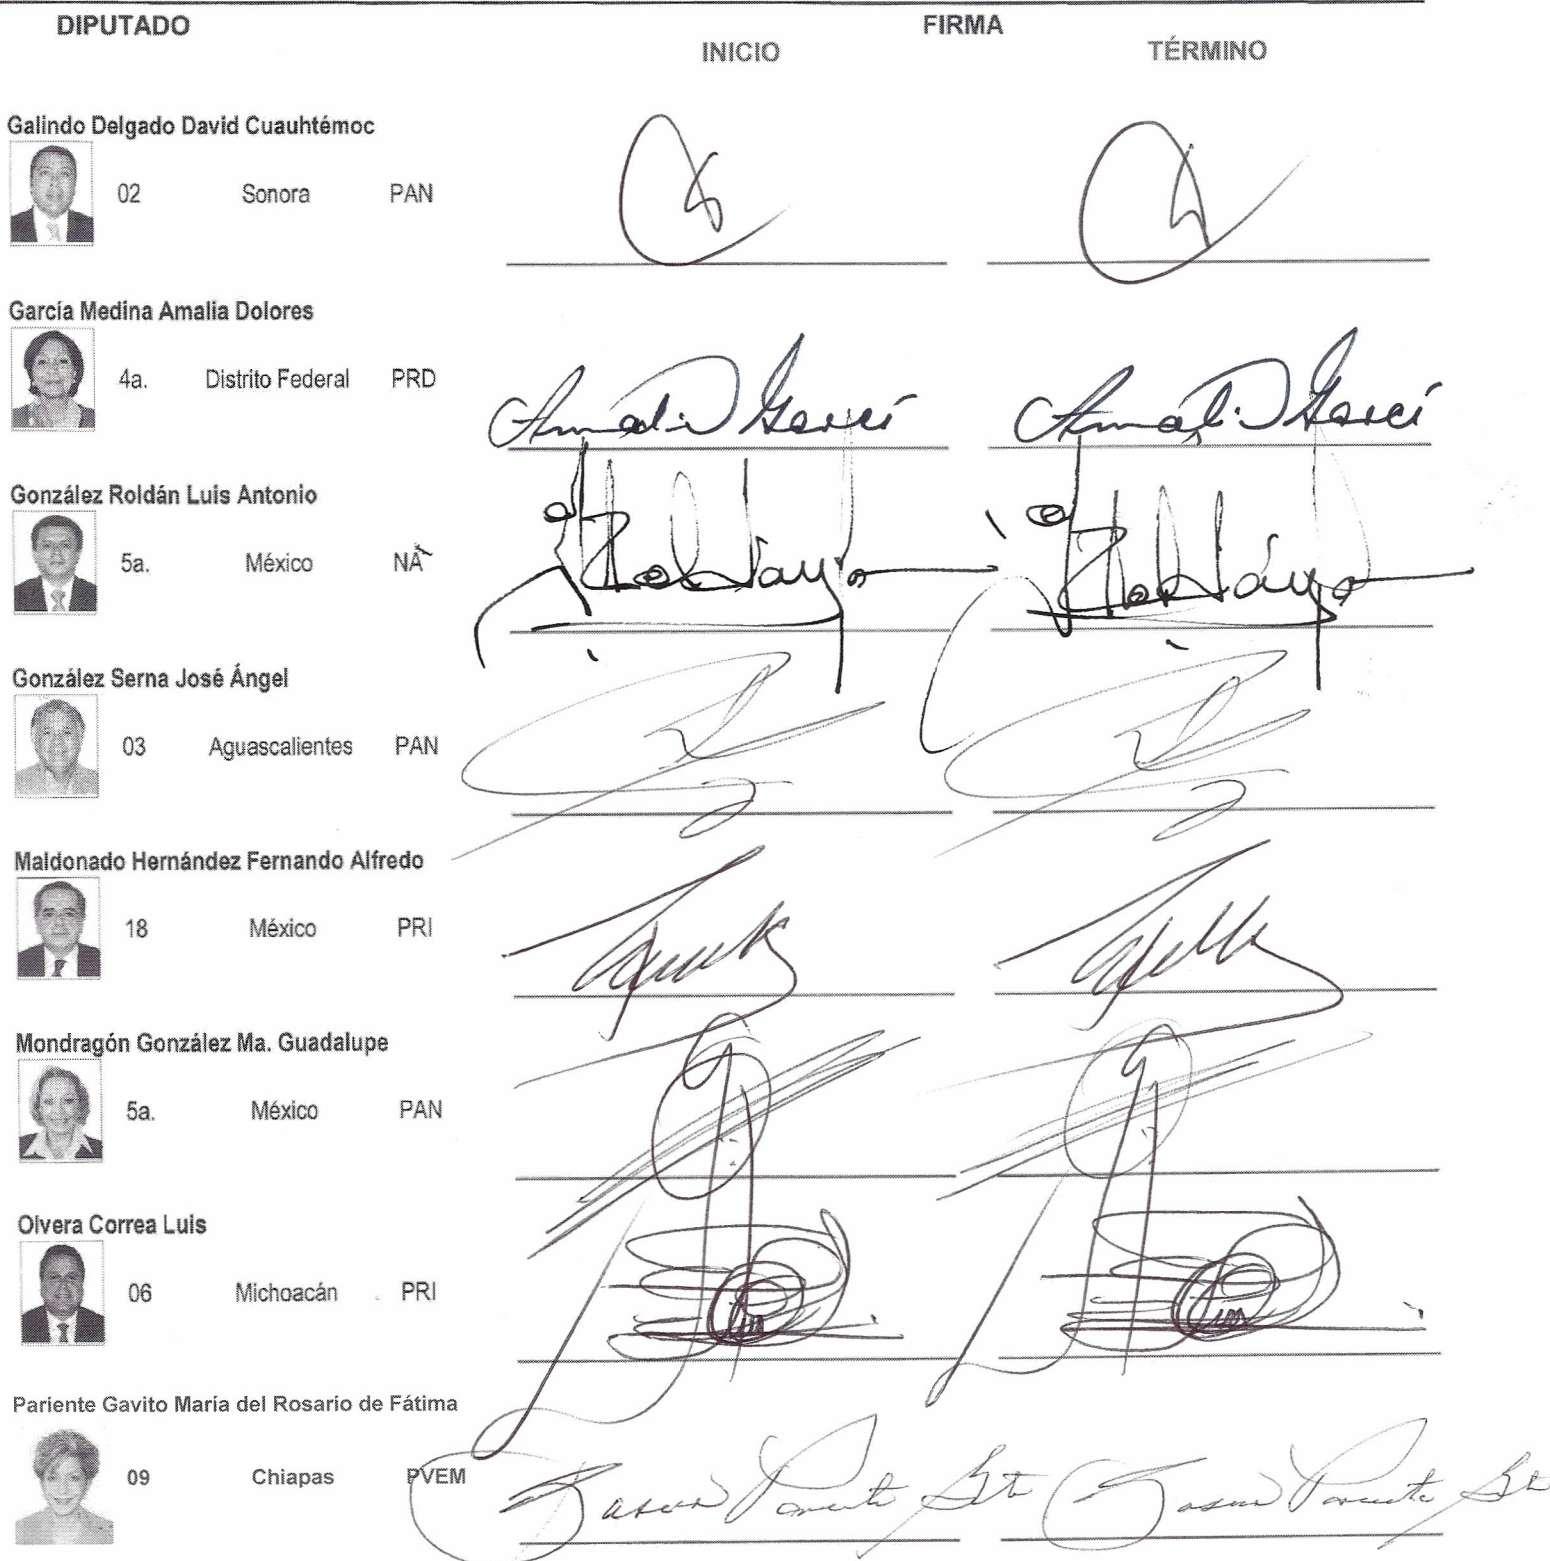 DIPUTADO FIRMA
INICIO TÉRMINO
Galindo Delgado David Cuauhtémoc
02 Sonora PAN
García Medina Amalia Dolores
4a. Distrito Federal PRD
Amalia García Amalia García
González Roldán Luis Antonio
5a. México NA
González Serna José Ángel
03 Aguascalientes PAN
Maldonado Hernández Fernando Alfredo
18 México PRI
Mondragón González Ma. Guadalupe
5a. México PAN
Olvera Correa Luis
06 Michoacán PRI
Pariente Gavito María del Rosario de Fátima
09 Chiapas PVEM